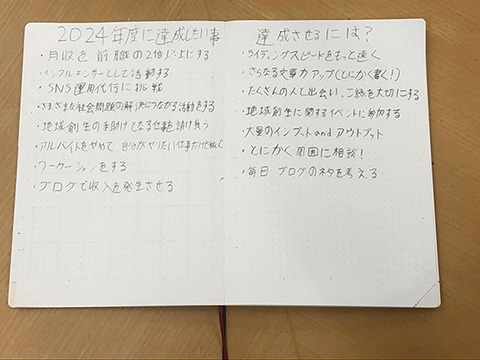 2024年度に達成したい事
・月収を前職の2倍以上にする
・インフルエンサーとして活動する
・SNS運用代行に挑戦
・さまざまな社会問題の解決につながる活動をする
・地域創生の手助けとなる仕事を請け負う
・アルバイトをやめて、自分がやりたい仕事だけで稼ぐ
・ワーケーションをする
・ブログで収入を発生させる
達成させるには?
・ライティングスピードをもっと速く
・さらなる文章力アップ(とにかく書く!)
・たくさんの人と出会い、ご縁を大切にする
・地域創生に関するイベントに参加する
・大量のインプットandアウトプット
・とにかく周囲に相談!
・毎日 ブログのネタを考える